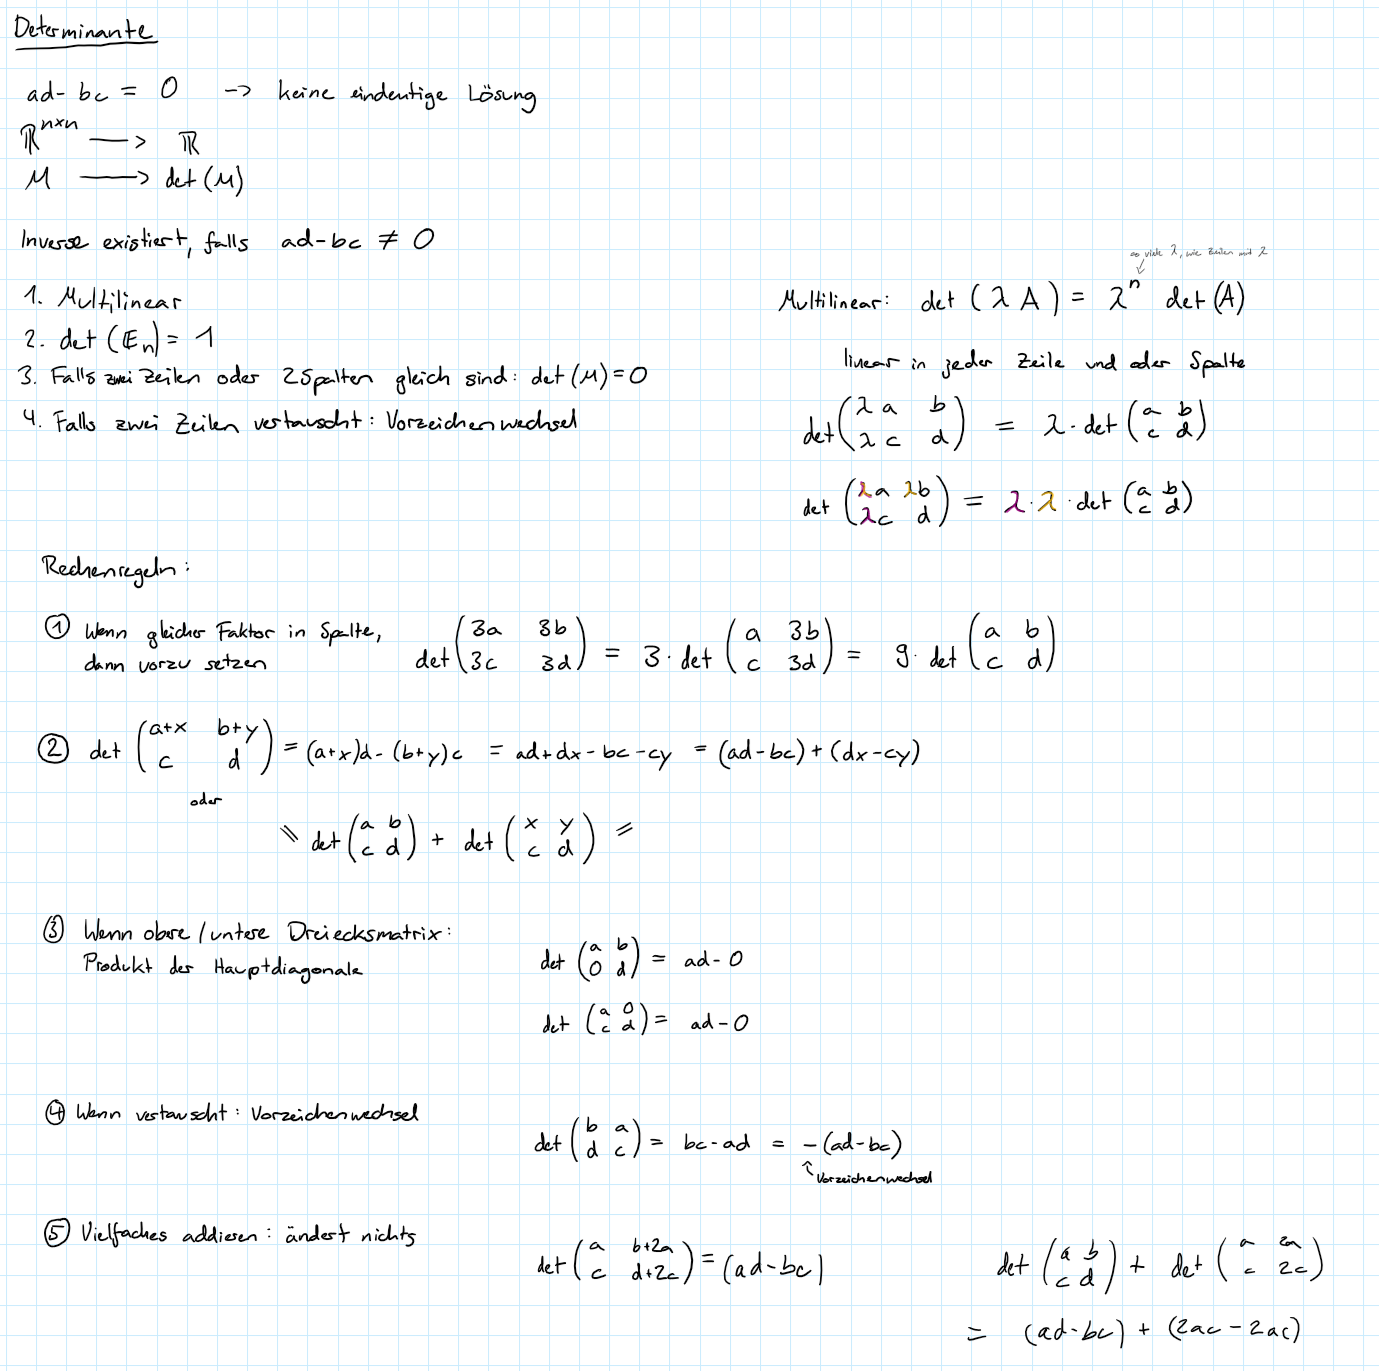 Determinante
ad - bc = 0 -> keine eindeutige Lösung
ℝⁿˣⁿ —> ℝ
M —> det (M)
Inverse existiert, falls ad-bc ≠ 0
1. Multilinear
2. det (Eₙ) = 1
3. Falls zwei Zeilen oder 2 Spalten gleich sind: det (M) = 0
4. Falls zwei Zeilen vertauscht: Vorzeichenwechsel
so viele λ, wie Zeilen mit λ
Multilinear: det (λ A) = λⁿ det (A)
linear in jeder Zeile und oder Spalte
det (λa b; λc d) = λ · det (a b; c d)
det (λa λb; λc d) = λ · λ · det (a b; c d)
Rechenregeln:
① Wenn gleicher Faktor in Spalte,
dann vorzu setzen
det (3a 3b; 3c 3d) = 3 · det (a 3b; c 3d) = 9 · det (a b; c d)
② det (a+x b+y; c d) = (a+x)d - (b+y)c = ad+dx-bc-cy = (ad-bc) + (dx-cy)
oder
\\ det (a b; c d) + det (x y; c d) =
③ Wenn obere / untere Dreiecksmatrix:
Produkt der Hauptdiagonale
det (a b; 0 d) = ad - 0
det (a 0; c d) = ad - 0
④ Wenn vertauscht: Vorzeichenwechsel
det (b a; d c) = bc - ad = -(ad-bc)
↑ Vorzeichenwechsel
⑤ Vielfaches addieren: ändert nichts
det (a b+2a; c d+2c) = (ad-bc)
det (a b; c d) + det (a 2a; c 2c)
= (ad-bc) + (2ac - 2ac)